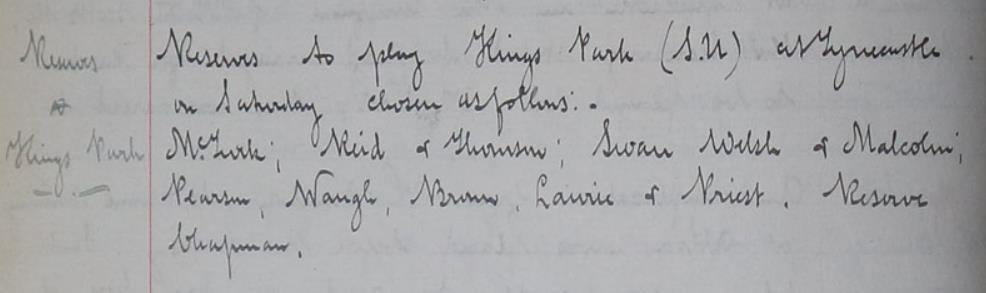 Reserves
v
Kings Park
Reserves to play Kings Park (S.U) at Tynecastle.
on Saturday chosen as follows:-
McTurk; Reid & Thomson; Swan Welsh & Malcolm;
Pearson, Waugh, Brown, Laurie & Priest. Reserve
Chapman.